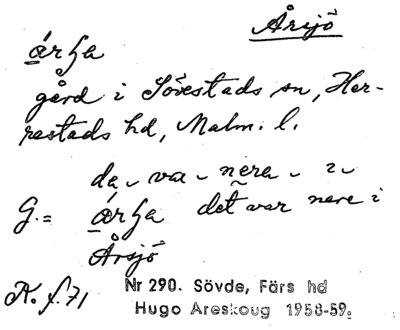 Årsjö
årʃa
gård i Sövestads sn, Her-
restads hd, Malm. l.
da, va nera i
G. = årʃa det var nere i
Årsjö
K. f. 71
Nr 290. Sövde, Färs hd
Hugo Areskoug 1958-59.